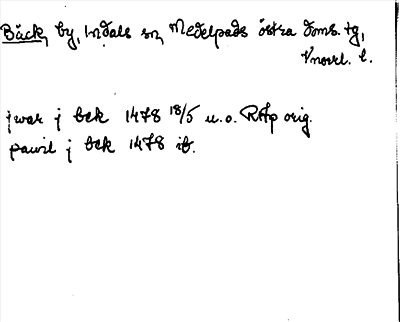 Bäck, by, Indals sn, Medelpads östra doms. tg,
Vnorrl. l.
jwar j bek 1478 18/5 u.o. RAp orig.
pawil j bek 1478 ib.